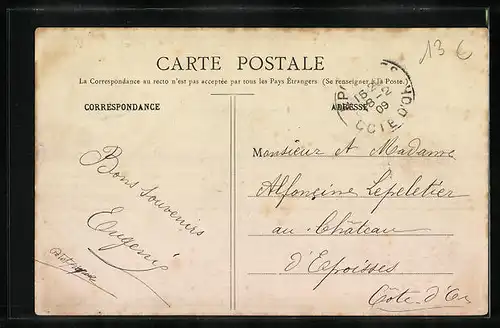 13 €
CARTE POSTALE
La Correspondance au recto n'est pas acceptée par tous les Pays Étrangers (Se renseigner à la Poste.)
CORRESPONDANCE
Bons souvenirs
Eugénie
ADRESSE
CÔTE D'OR
Monsieur et Madame
Alfonsine Lepeletier
au Château
d'Epoisses
Côte-d'Or